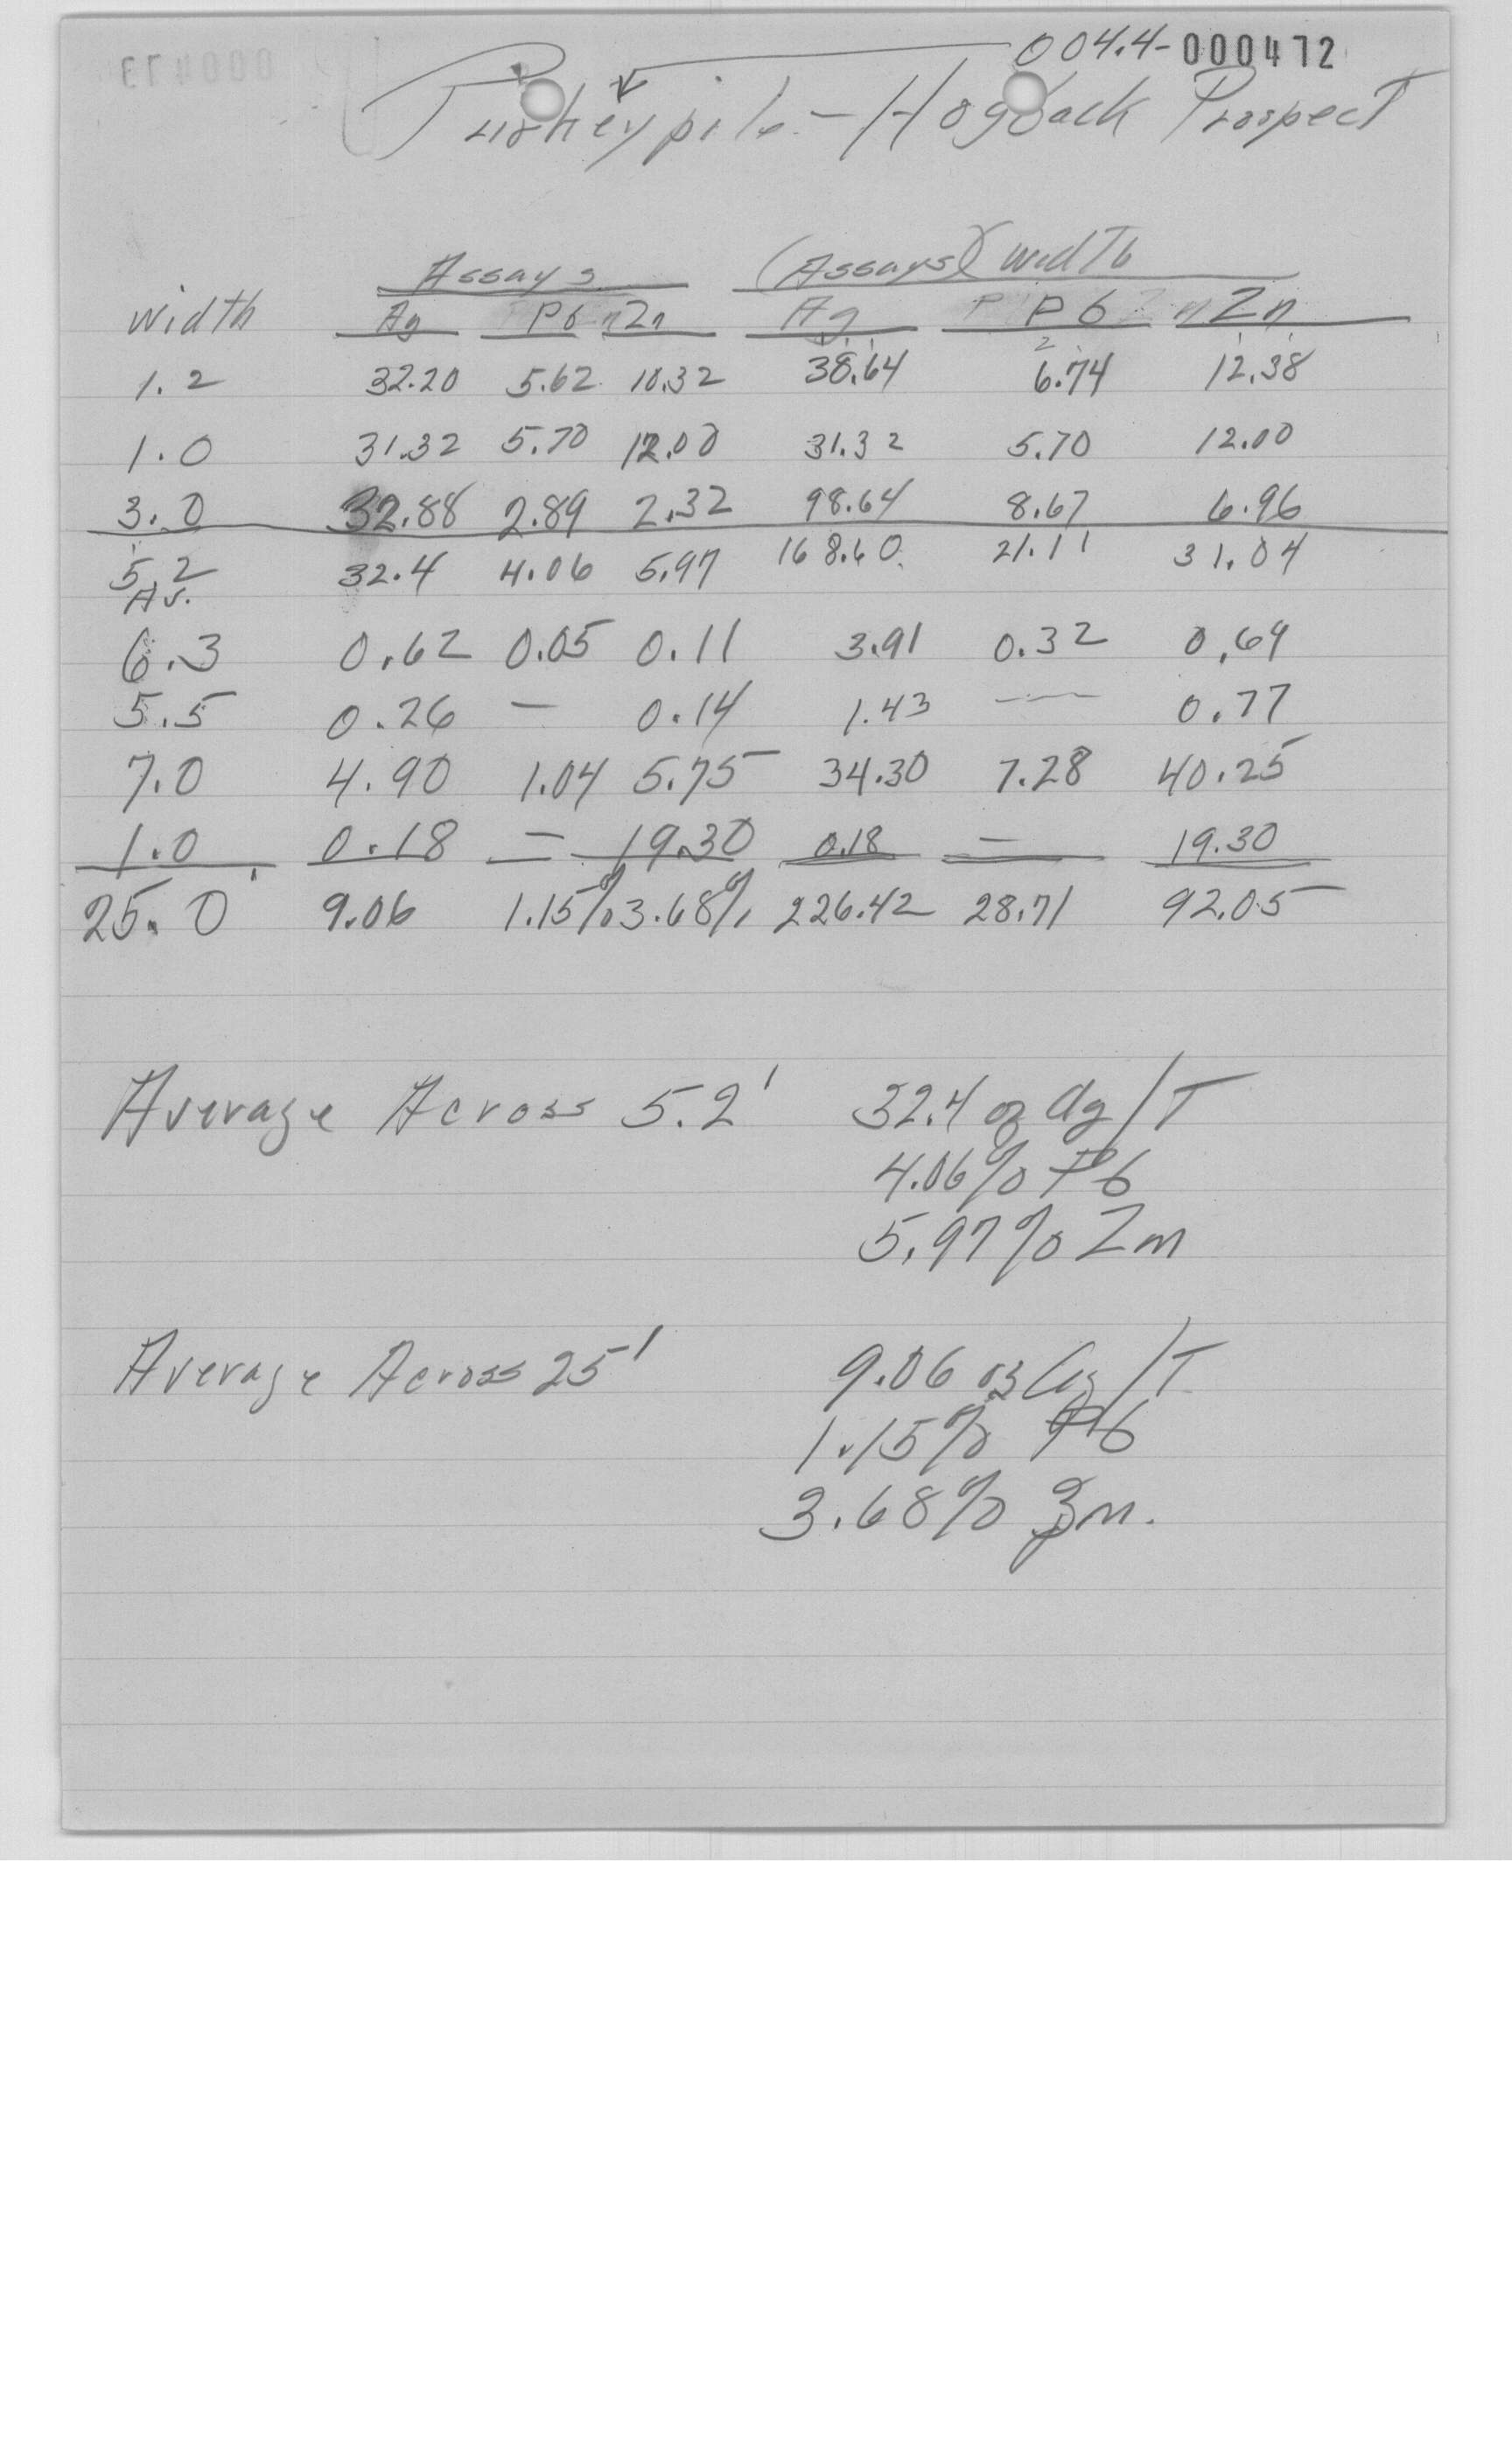 004.4-000472
Turkeypile - Hogback Prospect
Assays (Assays)(width
width Ag Pb Zn Ag Pb Zn
1.2 32.20 5.62 10.32 38.64 6.74 12.38
1.0 31.32 5.70 12.00 31.32 5.70 12.00
3.0 32.88 2.89 2.32 98.64 8.67 6.96
5.2 32.4 4.06 5.97 168.60 21.11 31.04
Av.
6.3 0.62 0.05 0.11 3.91 0.32 0.69
5.5 0.26 — 0.14 1.43 — 0.77
7.0 4.90 1.04 5.75 34.30 7.28 40.25
1.0 0.18 — 19.30 0.18 — 19.30
25.0' 9.06 1.15% 3.68% 226.42 28.71 92.05
Average Across 5.2' 32.4 oz Ag/T
4.06% Pb
5.97% Zn
Average Across 25' 9.06 oz Ag/T
1.15% Pb
3.68% Zn.